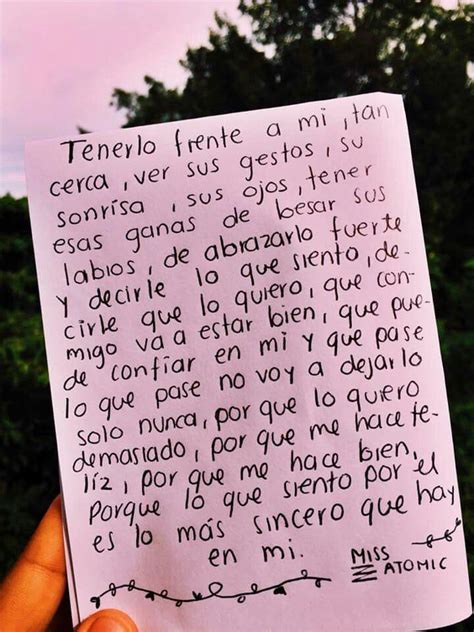 Tenerlo frente a mi, tan
cerca, ver sus gestos, su
sonrisa, sus ojos, tener
esas ganas de besar sus
labios, de abrazarlo fuerte
y decirle lo que siento, de-
cirle que lo quiero, que con-
migo va a estar bien, que pue-
de confiar en mi y que pase
lo que pase no voy a dejarlo
solo nunca, por que lo quiero
demasiado, por que me hace fe-
líz, por que me hace bien,
Porque lo que siento por el
es lo más sincero que hay
en mi.
MISS
ATOMIC